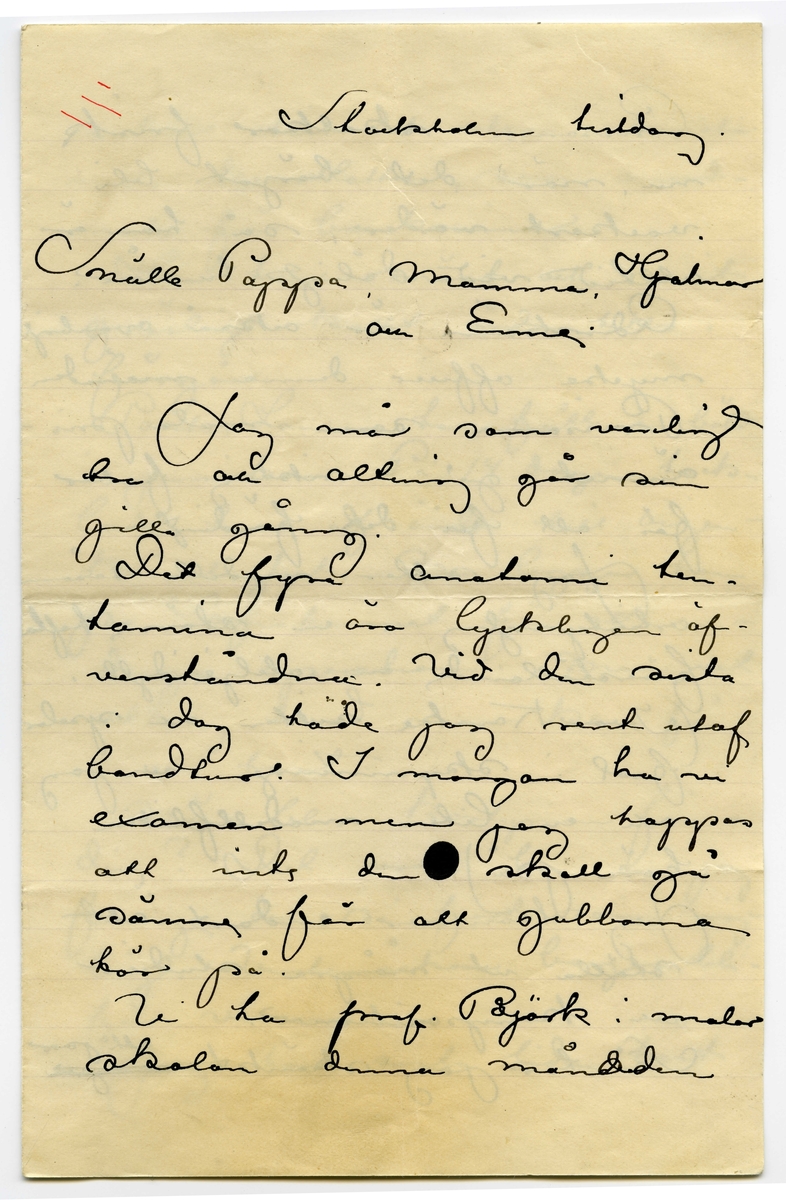 Stockholm tisdag.
Snälle Pappa, Mamma, Hjalmar
och Emmy
Jag mår som vanligt
bra och allting går sin
gilla gång.
Det fyra anatomi ten-
tamina äro lyckligen öf-
verståndna. Vid den sista
i dag hade jag rent utaf
bondtur. I morgon ha vi
examen men jag hoppas
att inte den skall gå
sämre för att gubbarna
kör på.
Vi ha prof. Björk i målar
skolan denna månaden